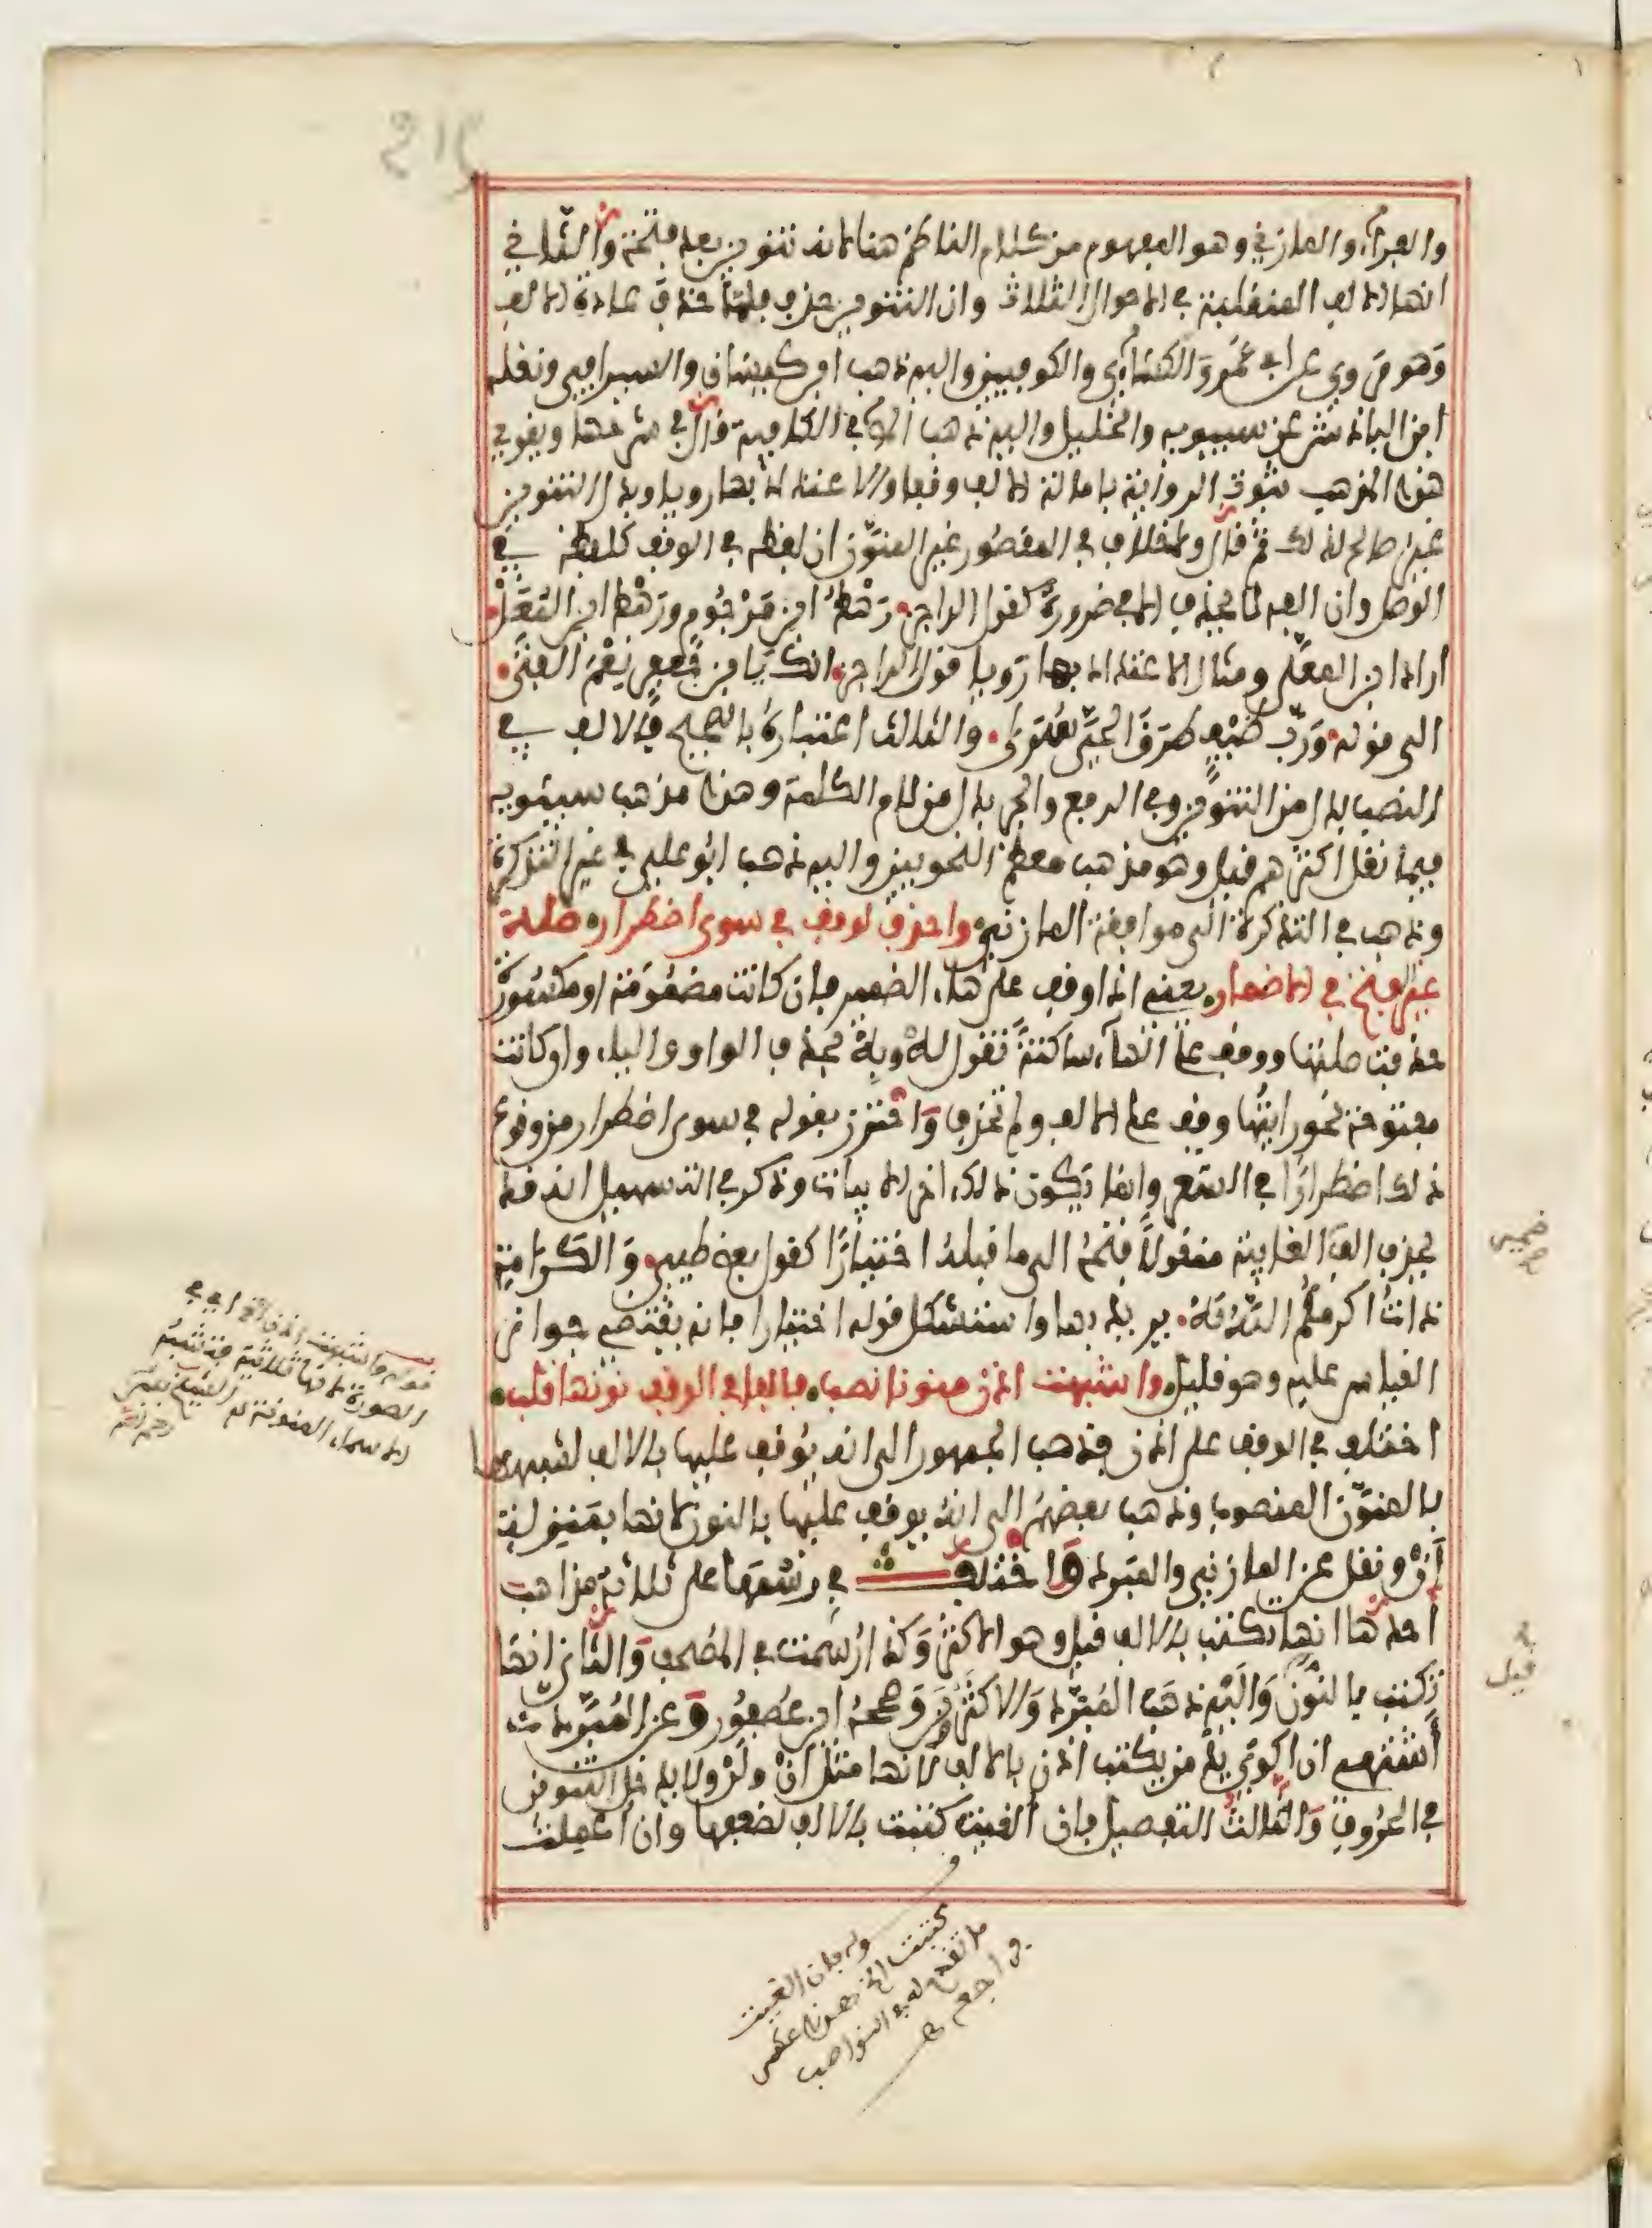 والفراء والمازني وهو المفهوم من كلام الناظم هنا لانه تنوين بعد فتحة والثاني
انها الالف المنقلبة في الاحوال الثلاث وان التنوين حذف فلما حذف عادة الالف
وهو مروي عن ابي عمرو والكسائي والكوفيين واليه ذهب ابن كيسان والسيرافي ونقله
ابن الباذش عن سيبويه والخليل واليه ذهب المص في الكافية قال في شرحها ويقوي
هذا المذهب ثبوت الرواية بامالة الالف وقفا والاعتداد بها رويا وبدل التنوين
غير صالح لذلك ثم قال ولا خلاف في المقصور غير المنون ان لفظه في الوقف كلفظه في
الوصل وان الفه لا تحذف الا في ضرورة كقول الراجز رهط ابن مرجوم ورهط ابن المعل
اراد ابن المعلى ومثال الاعتداد بها رويا قول الراجز انك يا ابن جعفر نعم الفتى
الى قوله ورب ضيف طرق الحي سرى والثالث اعتباره بالصحيح فالالف في
النصب بدل من التنوين وفي الرفع والجر بدل من لام الكلمة وهذا مذهب سيبويه
فيما نقل اكثرهم قيل وهو مذهب معظم النحويين واليه ذهب ابو علي في غير التذكرة
وذهب في التذكرة الى موافقة المازني واحذف لوقف في سوى اضطرار صلة
غير الفتح في الاضمار يعني اذا وقف على هاء الضمير فان كانت مضمومة او مكسورة
حذفت صلتها ووقف على الهاء ساكنة تقول له وبه بحذف الواو والياء وان كانت
مفتوحة نحو رايتها وقف على الالف ولم تحذف واحترز بقوله في سوى اضطرار من وقوع
ذلك اضطرارا في الشعر وانما يكون ذلك اخر الابيات وذكر في التسهيل انه قد
تحذف الف الغايبة منقولا فتحه الى ما قبله اختيارا كقول بعض طيئ والكرامة
ذات اكرمكم الله به يريد بها واستشكل قوله اختيارا فانه يقتضي جواز
القياس عليه وهو قليل واشبهت اذن منونا نصب فالفا في الوقف نونها قلب
اختلف في الوقف على اذن فذهب الجمهور الى انه يوقف عليها بالالف لشبهها
بالمنون المنصوب وذهب بعضهم الى انه يوقف عليها بالنون لانها بمنزلة
أن ونقل عن المازني والمبرد واختلف في رسمها على ثلاثة مذاهب
احدها انها تكتب بالالف قيل وهو الاكثر وكذا رسمت في المصحف والثاني انها
تكتب بالنون واليه ذهب المبرد والاكثرون وصححه ابن عصفور وعن المبرد
أشتهي ان اكوي يد من يكتب اذن بالالف لانها مثل ان ولن ولا يدخل التنوين
في الحروف والثالث التفصيل فان الغيت كتبت بالالف لضعفها وان اعملت
قوله واشبهت اذن
قوله فان الغيت
كتبت الخ
فراجعه